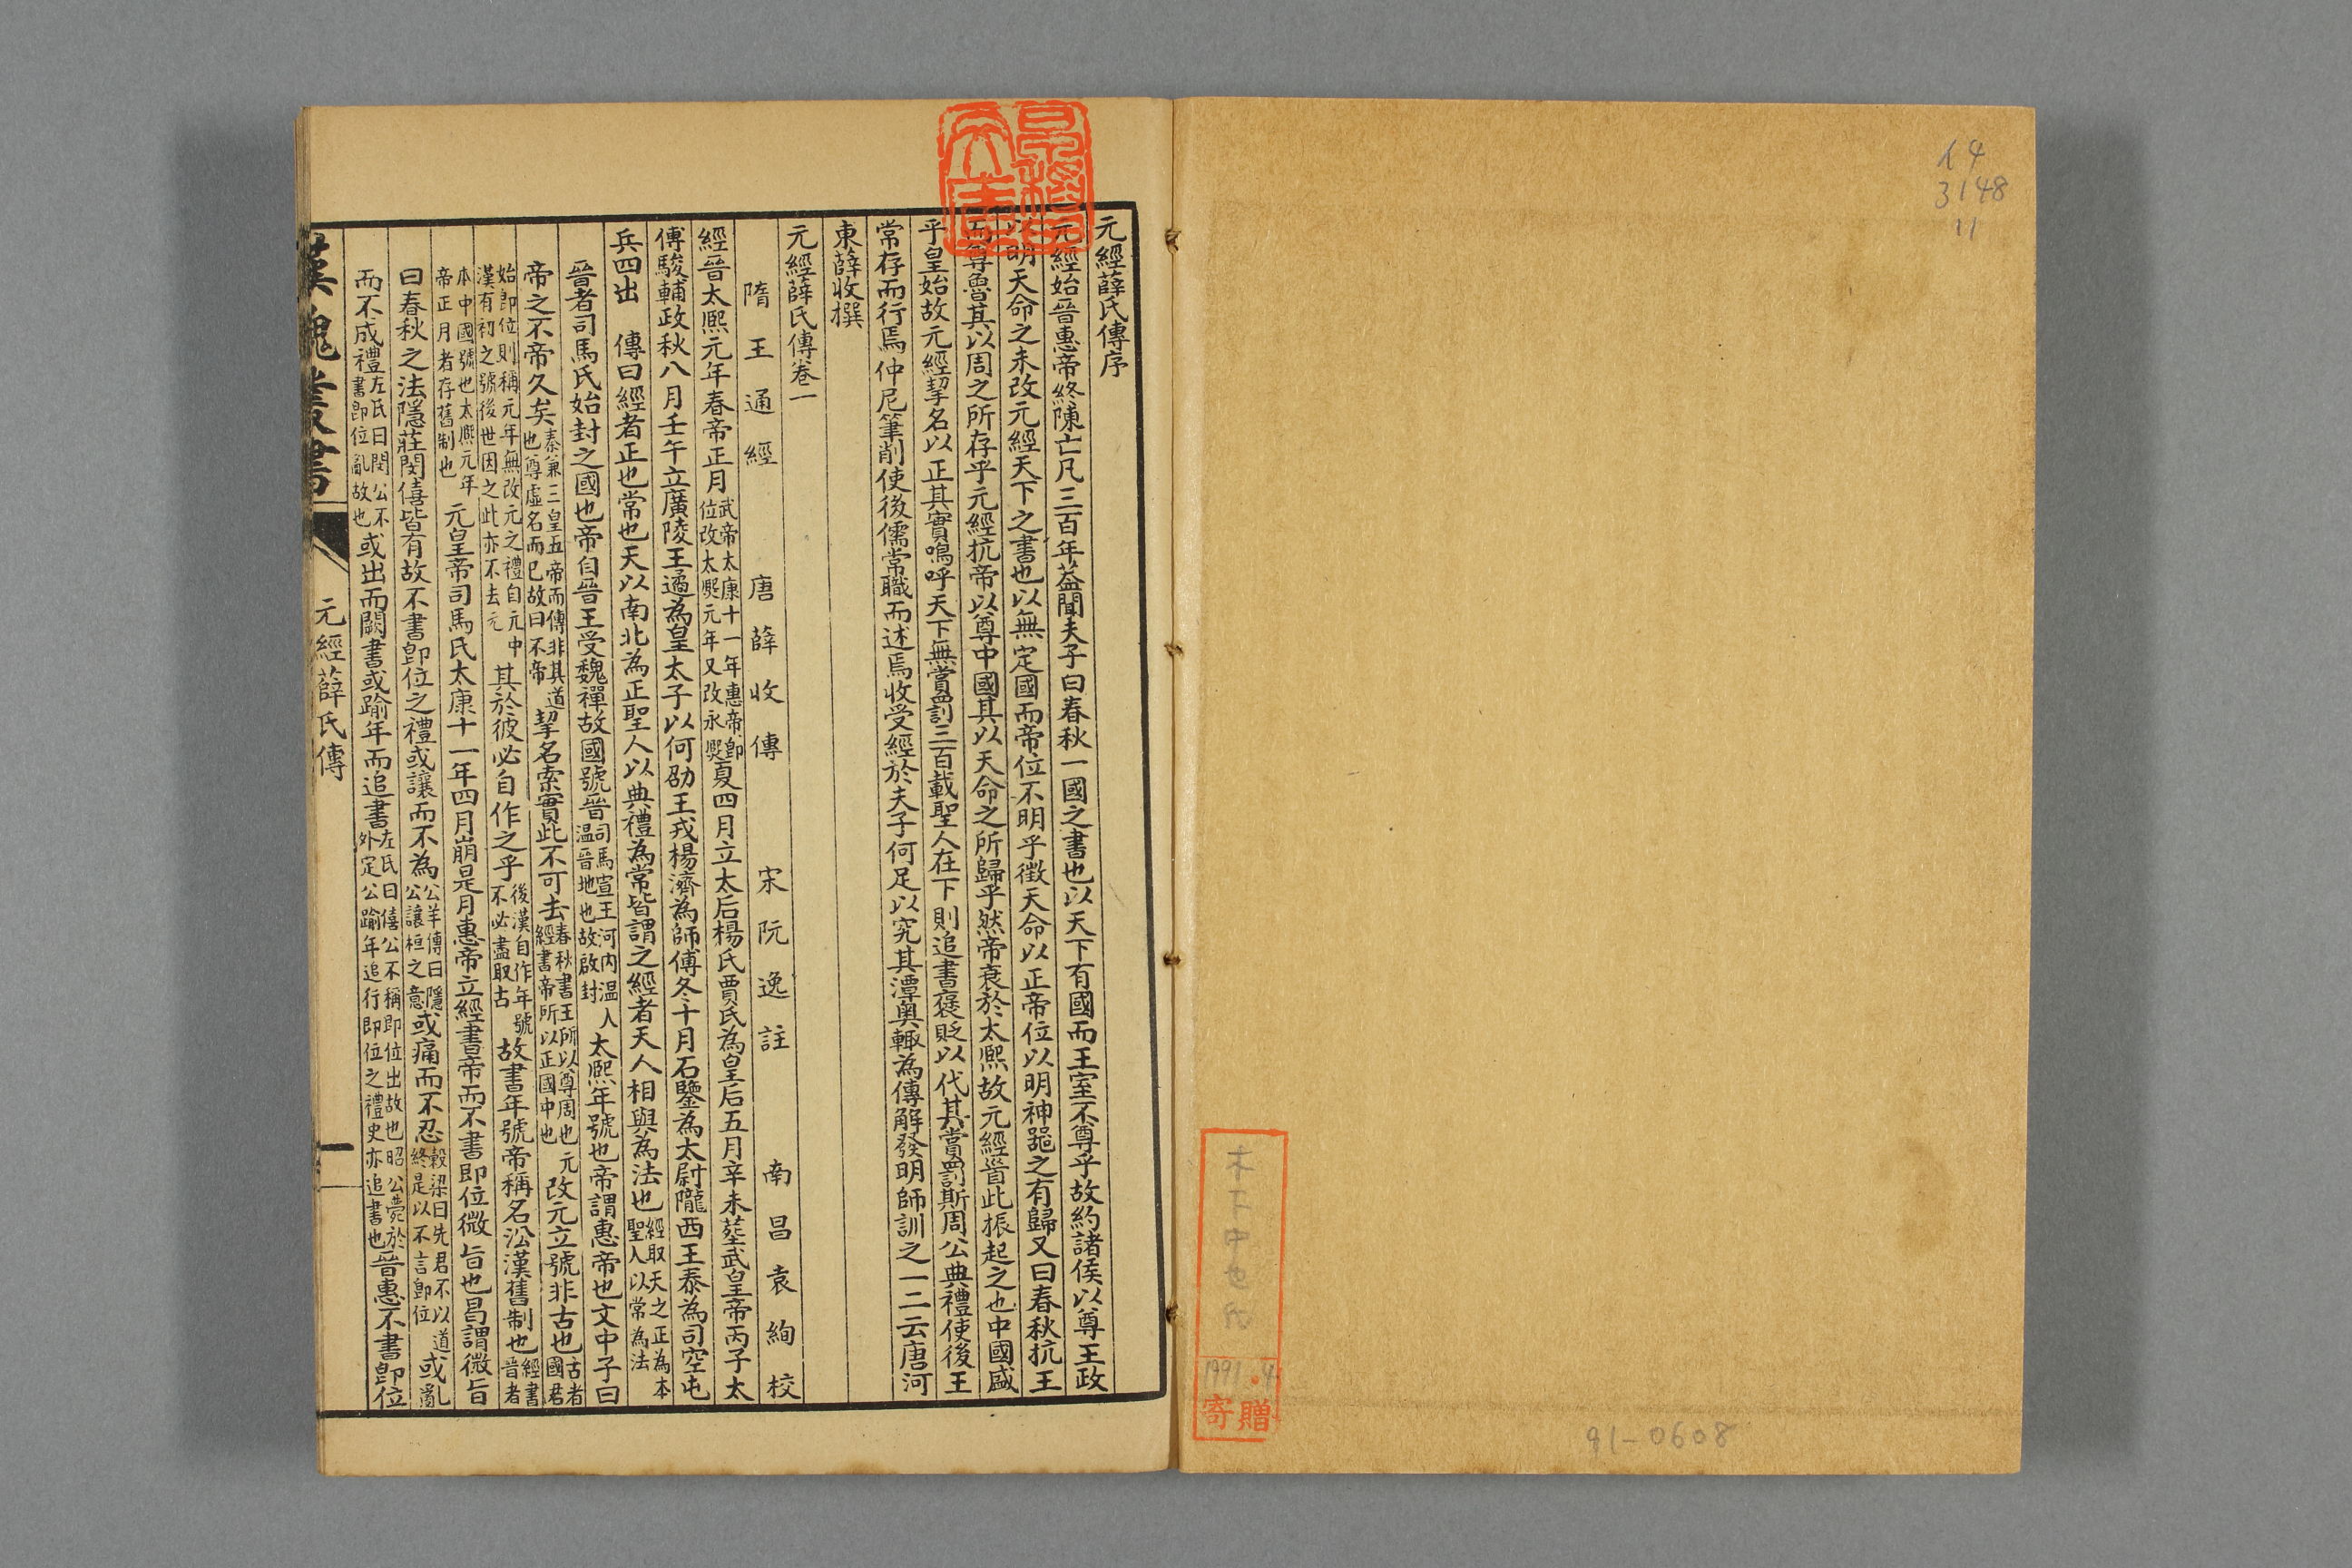 14
3148
11
91-0608
木下中也氏
1991.4
寄贈
元經薛氏傳序
元經始晉惠帝終陳亡凡三百年蓋聞夫子曰春秋一國之書也以天下有國而王室不尊乎故約諸侯以尊王政
以明天命之未改元經天下之書也以無定國而帝位不明乎徵天命以正帝位以明神器之有歸又曰春秋抗王
而尊魯其以周之所存乎元經抗帝以尊中國其以天命之所歸乎然帝衰於太熙故元經首此振起之也中國盛
乎皇始故元經挈名以正其實嗚呼天下無賞罰三百載聖人在下則追書褒貶以代其賞罰斯周公典禮使後王
常存而行焉仲尼筆削使後儒常職而述焉收受經於夫子何足以究其潭奧輙為傳解發明師訓之一二云唐河
東薛收撰
元經薛氏傳卷一
隋王通經 唐薛收傳 宋阮逸註 南昌袁絢校
經晉太熙元年春帝正月武帝太康十一年惠帝卽位改太熙元年又改永熙夏四月立太后楊氏賈氏為皇后五月辛未塟武皇帝丙子太
傅駿輔政秋八月壬午立廣陵王遹為皇太子以何劭王戎楊濟為師傅冬十月石鑒為太尉隴西王泰為司空屯
兵四出 傳曰經者正也常也天以南北為正聖人以典禮為常皆謂之經者天人相與為法也經取天之正為本聖人以常為法
晉者司馬氏始封之國也帝自晉王受魏禪故國號晉司馬宣王河內温人温晉地也故啟封太熙年號也帝謂惠帝也文中子曰
帝之不帝久矣秦兼三皇五帝而傳非其道也尊虛名而已故曰不帝挈名索實此不可去春秋書王所以尊周也元經書帝所以正國中也改元立號非古也古者國君
始卽位則稱元年無改元之禮自元中漢有初之號後世因之此亦不去元其於彼必自作之乎後漢自作年號不必盡取古故書年號帝稱名㳂漢舊制也經書晉者
本中國號也太熙元年帝正月者存舊制也元皇帝司馬氏太康十一年四月崩是月惠帝立經書帝而不書即位微旨也曷謂微旨
曰春秋之法隱莊閔僖皆有故不書卽位之禮或讓而不為公羊傳曰隱公讓桓之意或痛而不忍穀梁曰先君不以道終是以不言卽位或亂
而不成禮左氏曰閔公不書卽位亂故也或出而闕書或踰年而追書左氏曰僖公不稱即位出故也昭公薨於外定公踰年追行即位之禮史亦追書也晉惠不書卽位
漢魏叢書 元經薛氏傳 一